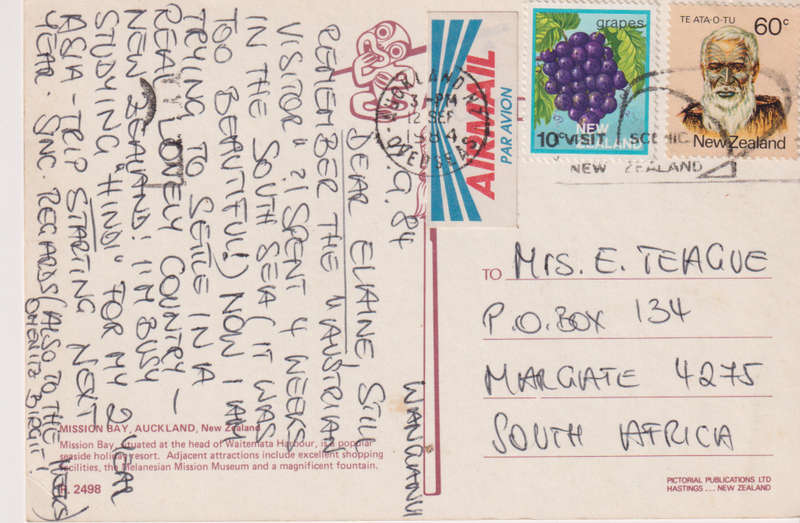 WANGANUI
9. 84
DEAR ELAINE STILL
REMEMBER THE "AUSTRIAN
VISITOR"? I SPENT 4 WEEKS
IN THE SOUTH SEA (IT WAS
TOO BEAUTIFUL!) NOW I AM
TRYING TO SETTLE IN A
REAL LOVELY COUNTRY –
NEW ZEALAND! I'M BUSY
STUDYING "HINDI" FOR MY 2 YEAR
ASIA-TRIP STARTING NEXT
YEAR. SINC. REGARDS (ALSO TO THE
BIRGIT!
MISSION BAY, AUCKLAND, New Zealand
Mission Bay, situated at the head of Waitemata Harbour, is a popular
seaside holiday resort. Adjacent attractions include excellent shopping
facilities, the Melanesian Mission Museum and a magnificent fountain.
H. 2498
AIRMAIL
PAR AVION
AUCKLAND
PM
12 SEP
1984
OVERSEAS
grapes
10c
NEW
ZEALAND
TE ATA-O-TU
60c
New Zealand
VISIT SCENIC
NEW ZEALAND
TO MRS. E. TEAGUE
P.O. BOX 134
MARGATE 4275
SOUTH AFRICA
PICTORIAL PUBLICATIONS LTD
HASTINGS ... NEW ZEALAND